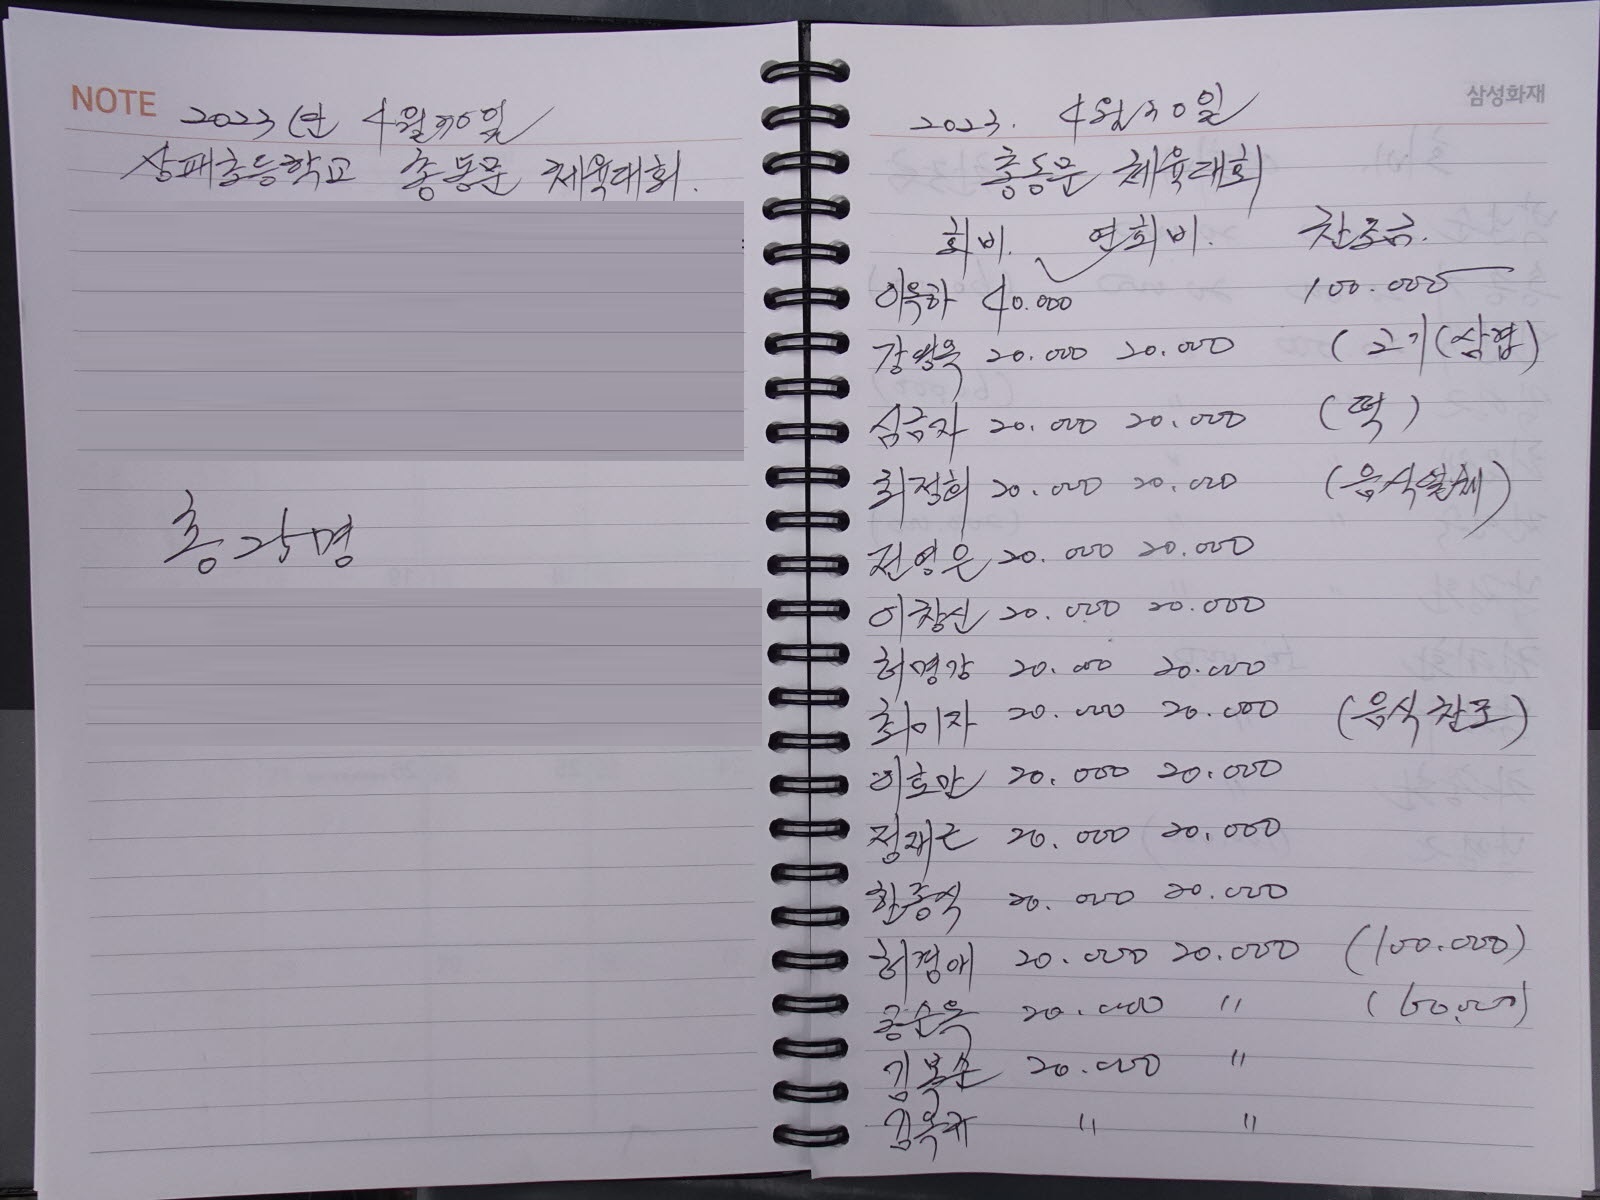 NOTE
2023년 4월 30일
상패초등학교 총동문 체육대회.
총 각 명
삼성화재
2023. 4월 30일
총동문 체육대회
회비. 연회비. 찬조금.
이옥하 40.000 100.000
강광옥 20.000 20.000 (2기(삼겹)
심금자 20.000 20.000 (떡)
최정희 20.000 20.000 (음식일체)
전영은 20.000 20.000
이창신 20.000 20.000
허명강 20.000 20.000
최이자 20.000 20.000 (음식찬조)
이호만 20.000 20.000
정재근 20.000 20.000
한종식 20.000 20.000
허경애 20.000 20.000 (100.000)
홍순옥 20.000 〃 (60.000)
김복순 20.000 〃
김옥규 〃 〃